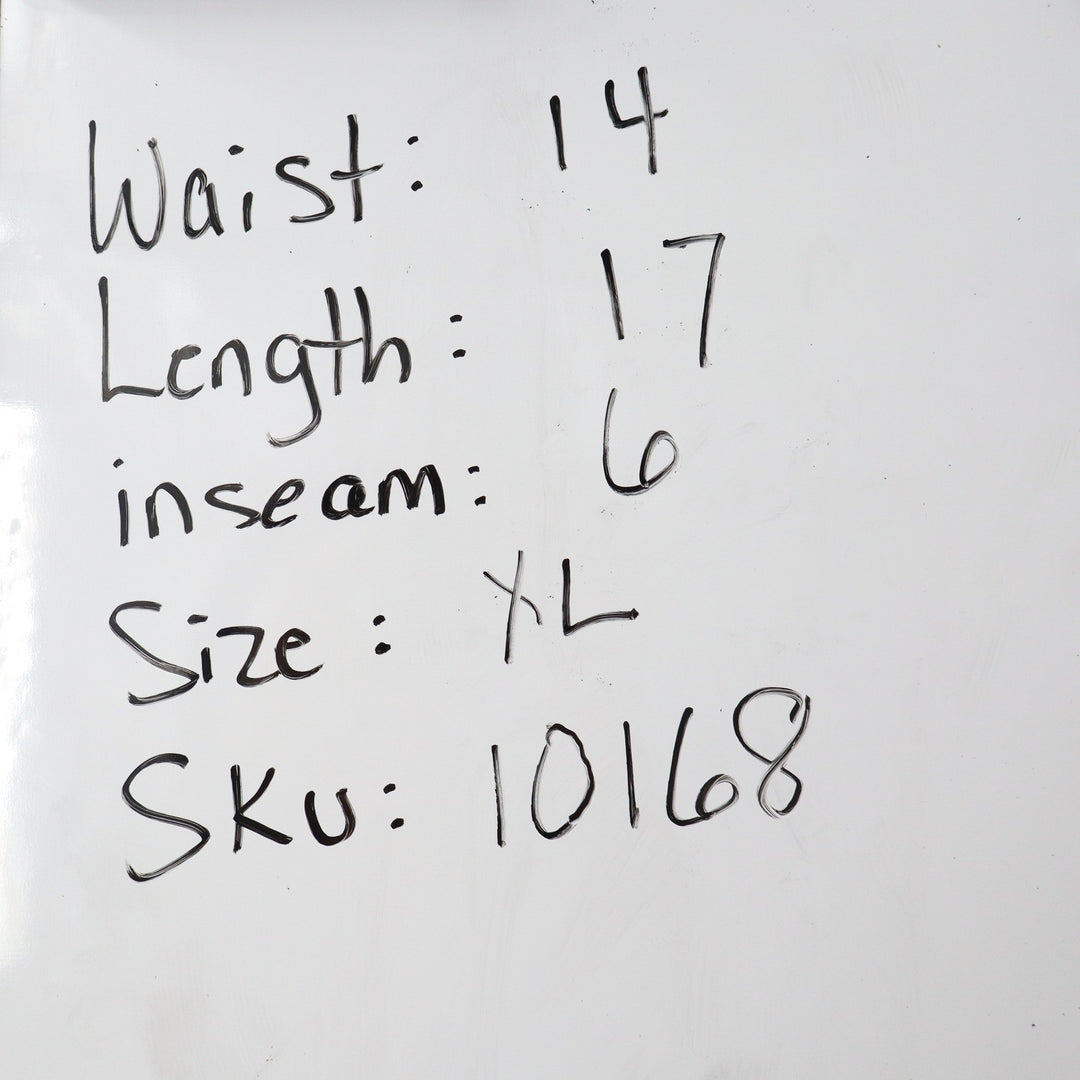 Waist: 14
Length: 17
inseam: 6
Size: XL
SKU: 10168